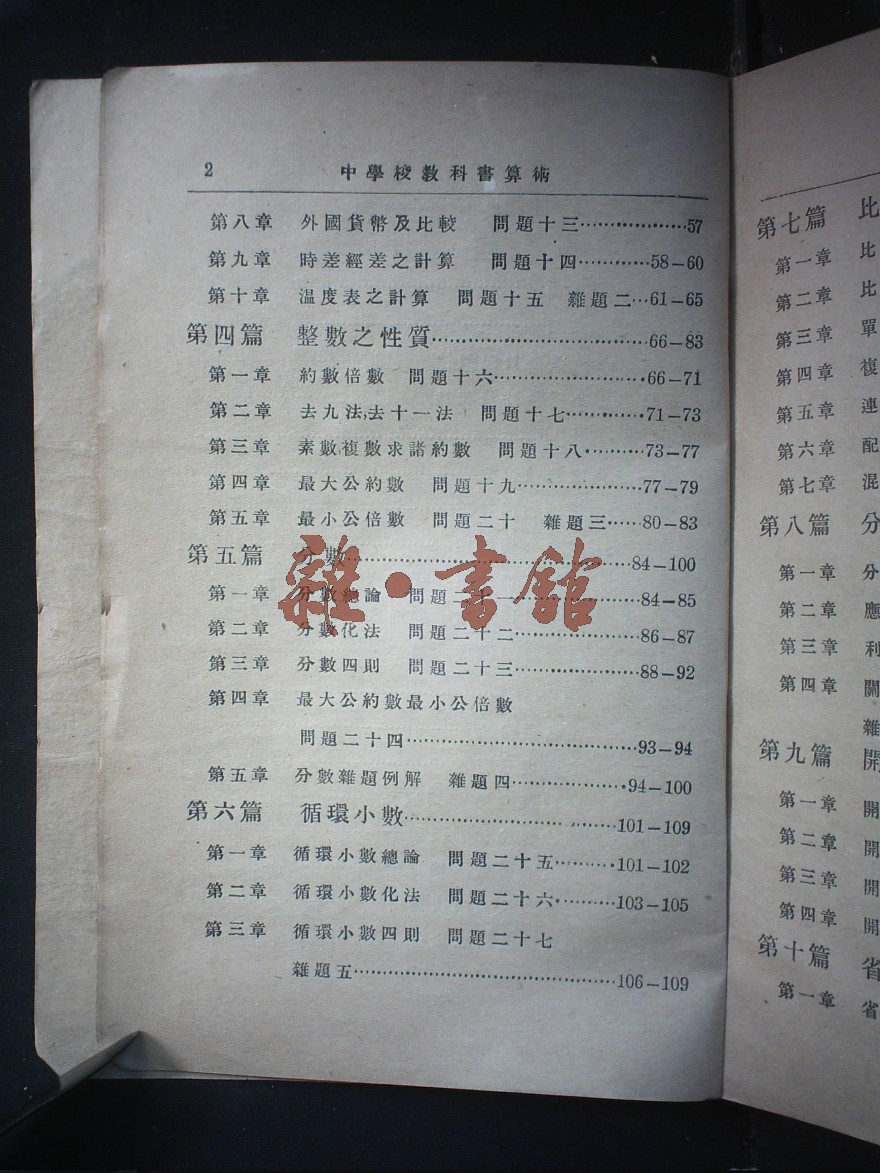 2 中學校教科書算術
第八章 外國貨幣及比較 問題十三…………………57
第九章 時差經差之計算 問題十四…………58–60
第十章 温度表之計算 問題十五 雜題二…61–65
第四篇 整數之性質…………………………66–83
第一章 約數倍數 問題十六………………………66–71
第二章 去九法去十一法 問題十七…………71–73
第三章 素數複數求諸約數 問題十八…………73–77
第四章 最大公約數 問題十九…………………77–79
第五章 最小公倍數 問題二十 雜題三……80–83
第五篇 分數……………………………………84–100
第一章 分數總論 問題二十一…………………84–85
第二章 分數化法 問題二十二…………………86–87
第三章 分數四則 問題二十三…………………88–92
第四章 最大公約數最小公倍數
問題二十四…………………………………93–94
第五章 分數雜題例解 雜題四…………………94–100
第六篇 循環小數………………………………101–109
第一章 循環小數總論 問題二十五…………101–102
第二章 循環小數化法 問題二十六…………103–105
第三章 循環小數四則 問題二十七
雜題五…………………………………………106–109
雜·書館
第七篇 比
第一章 比
第二章 比
第三章 單
第四章 複
第五章 連
第六章 配
第七章 混
第八篇 分
第一章 分
第二章 應
第三章 利
第四章 關
雜
第九篇 開
第一章 開
第二章 開
第三章 開
第四章 開
第十篇 省
第一章 省